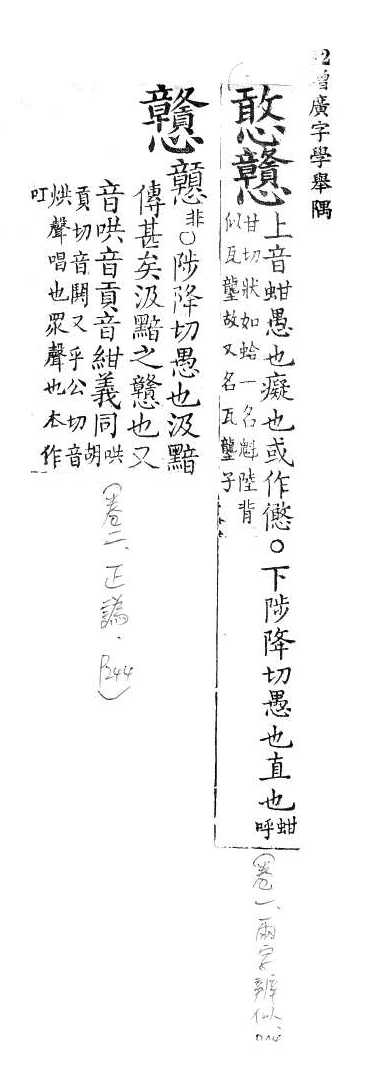 增廣字學舉隅
憨戇
上音蚶愚也癡也或作懲○下陟降切愚也直也
蚶呼
甘切狀如蛤一名魁陸背
似瓦壟故又名瓦壟子
(卷一、兩字辨似、
戇
非○陟降切愚也汲黯
傳甚矣汲黯之戇也又
音哄音貢音紺義同
哄胡
貢切音鬨又乎公切音
烘聲唱也眾聲也本作
叿
(卷二、正譌、P244)